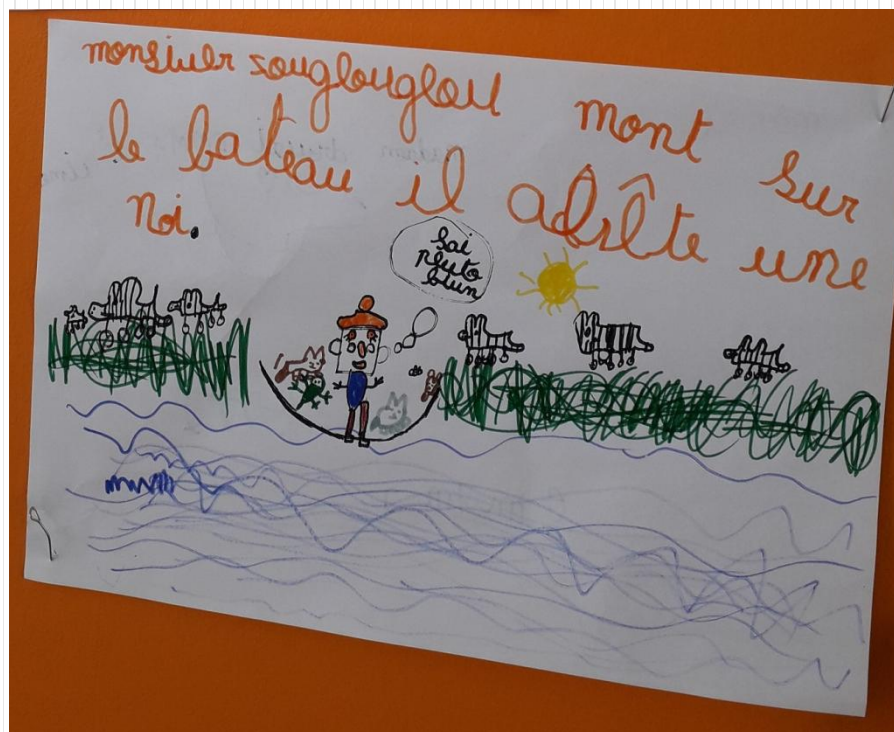 monsiuer zouglouglou mont sur
le bateau il adsête une
noi.
Sai
pluto
biun